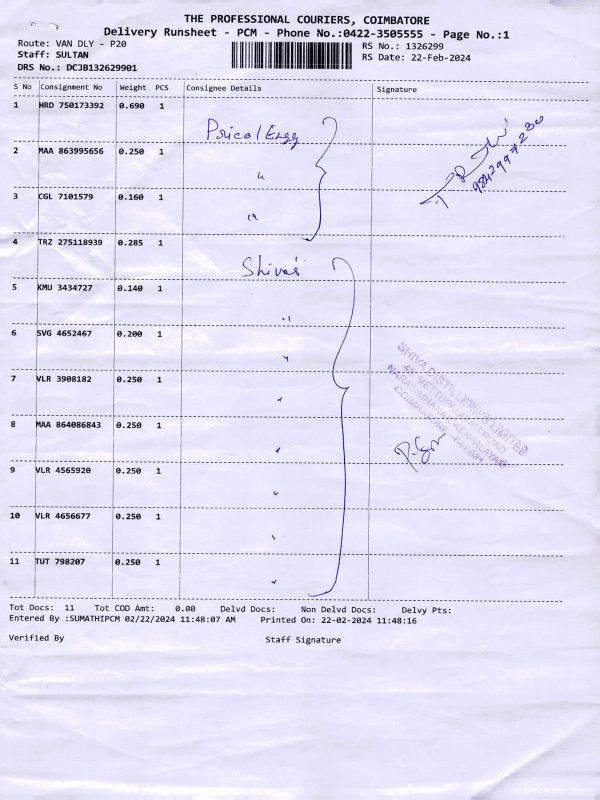 THE PROFESSIONAL COURIERS, COIMBATORE
Delivery Runsheet - PCM - Phone No.:0422-3505555 - Page No.:1
Route: VAN DLY - P20 RS No.: 1326299
Staff: SULTAN RS Date: 22-Feb-2024
DRS No.: DCJB132629901
S No Consignment No Weight PCS Consignee Details Signature
1 HRD 750173392 0.690 1
Pricol Engg
2 MAA 863995656 0.250 1 "
3 CGL 7101579 0.160 1 "
4 TRZ 275118939 0.285 1 Shiva's
5 KMU 3434727 0.140 1 "
6 SVG 4652467 0.200 1 "
7 VLR 3908182 0.250 1 "
8 MAA 864086843 0.250 1 "
9 VLR 4565920 0.250 1 "
10 VLR 4656677 0.250 1 "
11 TUT 798207 0.250 1 "
SHIVA DISTILLERIES LIMITED
METTUPALAYAM ROAD
COIMBATORE
Tot Docs: 11 Tot COD Amt: 0.00 Delvd Docs: Non Delvd Docs: Delvy Pts:
Entered By :SUMATHIPCM 02/22/2024 11:48:07 AM Printed On: 22-02-2024 11:48:16
Verified By Staff Signature